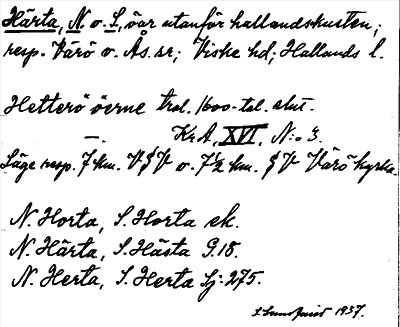 Härta, N. o. S., öar utanför hallandskusten;
resp. Värö o. Ås. sr; Viske hd; Hallands l.
Hetterö öerne trol. 1600-tal. slut.
—. Kr.A. XVI. N:o 3.
Läge resp. 7 km. V o. 7½ km. Värö kyrka.
N. Horta, S. Horta ek.
N. Härta, S. Hästa G.18.
N. Herta, S. Herta Sj: 275.
1937.